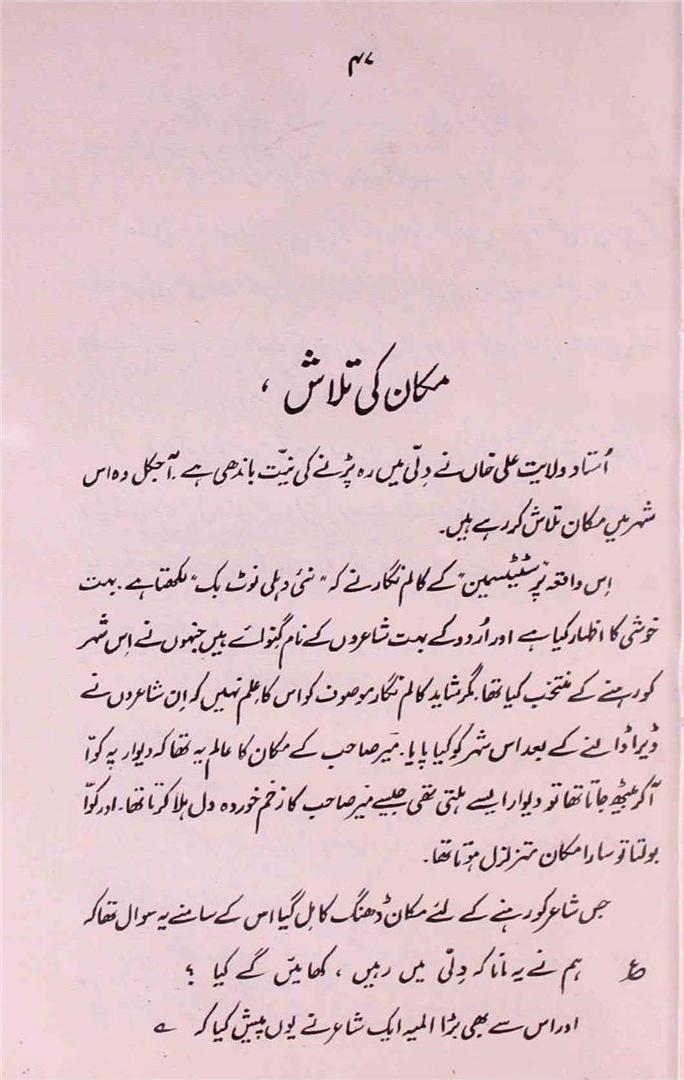 ۴۷
مکان کی تلاش ،
اُستاد ولایت علی خاں نے دِلّی میں رہ پڑنے کی نیّت باندھی ہے۔ آجکل وہ اس
شہر میں مکان تلاش کر رہے ہیں۔
اِس واقعہ پر "سٹیٹسمین" کے کالم نگار نے کہ "نئی دہلی نوٹ بک" لکھتا ہے۔ بہت
خوشی کا اظہار کیا ہے اور اُردو کے بہت شاعروں کے نام گِنوائے ہیں جنہوں نے اِس شہر
کو رہنے کے منتخب کیا تھا۔ مگر شاید کالم نگار موصوف کو اس کا عِلم نہیں کہ اِن شاعروں نے
ڈیرا ڈالنے کے بعد اس شہر کو کیا پایا۔ میر صاحب کے مکان کا عالم یہ تھا کہ دیوار پہ کوّا
آکر بیٹھ جاتا تھا تو دیوار ایسے ہلتی تھی جیسے میر صاحب کا زخم خوردہ دل ہلا کرتا تھا۔ اور کوّا
بولتا تو سارا مکان متزلزل ہوتا تھا۔
جس شاعر کو رہنے کے لئے مکان ڈھنگ کا مِل گیا اس کے سامنے یہ سوال تھا کہ
ع ہم نے یہ مانا کہ دِلّی میں رہیں ، کھائیں گے کیا ؟
اور اس سے بھی بڑا المیہ ایک شاعر نے یوں پیش کیا کہ ؎